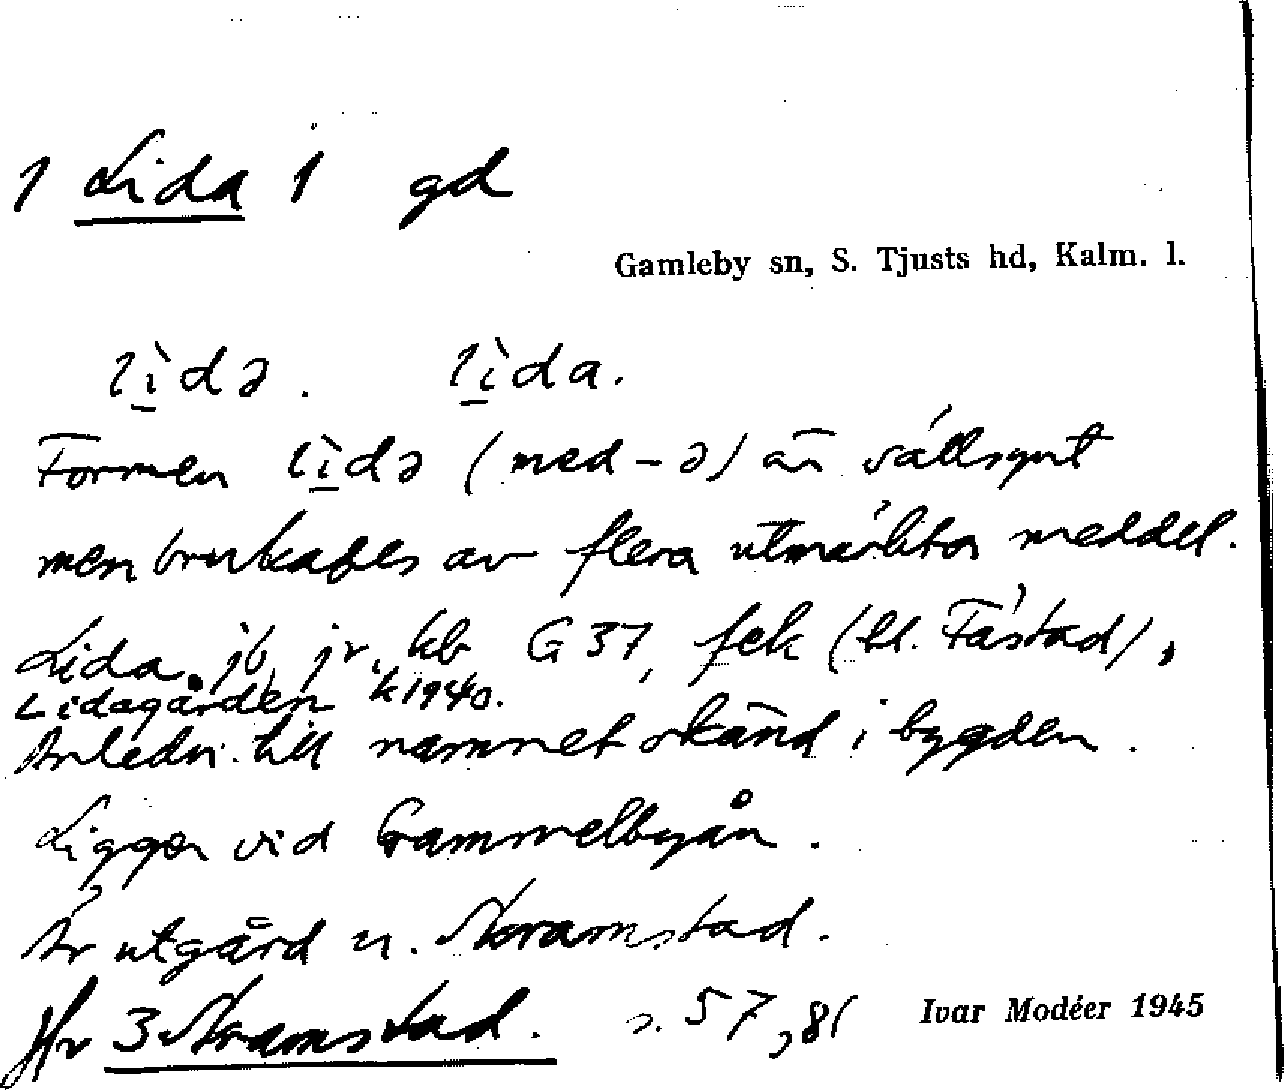 1 Lida 1 gd
Gamleby sn, S. Tjusts hd, Kalm. l.
lìdə. lìda.
Formen lìdə (med -ə) är sällsynt
men brukades av flera utmärkta meddel.
Lida jb, jr, kb G 37, fek (bl. Fåstad),
Lidagården k 1940.
Anledn. till namnet okänd i bygden.
Ligger vid Gammelbyån.
Är utgård u. Avramstad.
Jfr 3 Avramstad. s. 57, 81
Ivar Modéer 1945